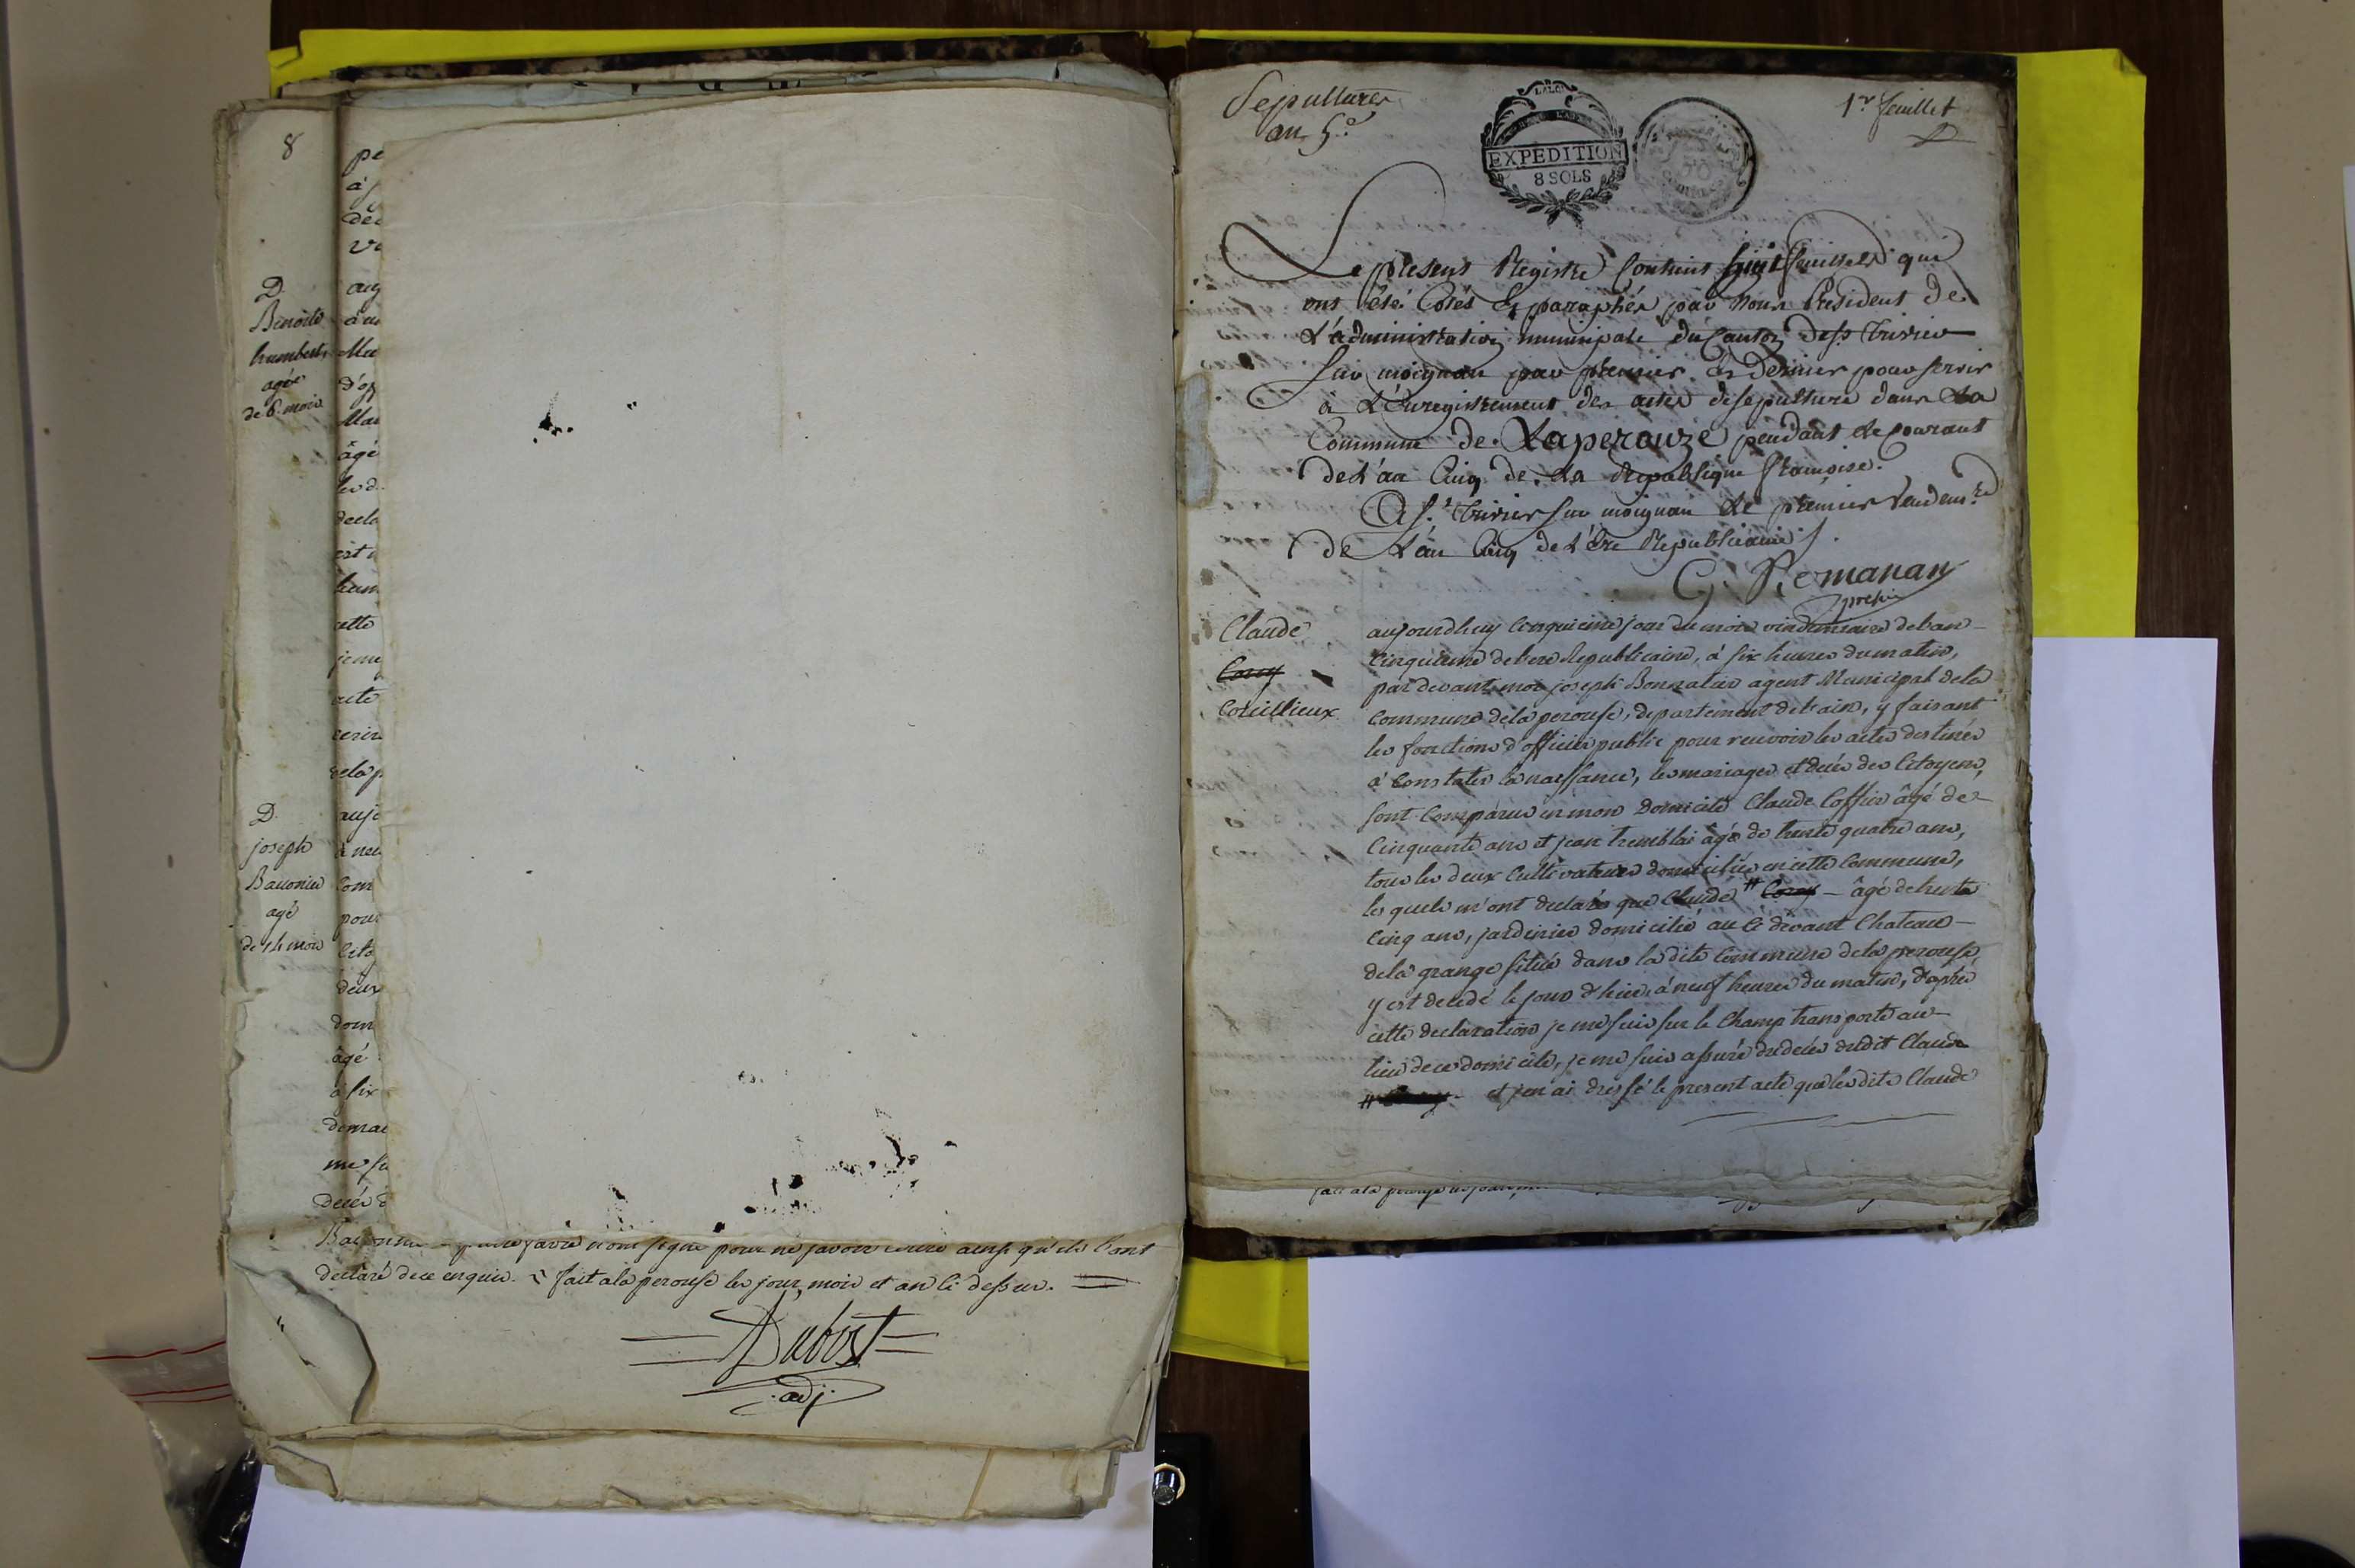 8
pe
à
dec
ve
D.
Benoite
humbert
agée
de 6. mois
aug
Mai
d'op
Mai
âgé
les d
decla
est
hum
cette
je me
acte
ecrire
dela p
D.
joseph
Bauonier
agé
de 14 mois
aujo
à neu
com
pour
cito
deux
dom
âgé
à six
demai
me su
decés d
avons signé pour ne savoir ecrire ainsi qu'ils l'ont
declaré de ce enquis. fait ala perouse les jour, mois et an ci dessus.
Dubost
adj.
Sepultures
an 5e
LA LOI
EXPEDITION
8 SOLS
1er feuillet
Le present Registre contient huit feuillets qui
ont été Cotés & paraphés par Nous President de
L'administration municipale du Canton de St. Trivier
Sur moignan par premier & Dernier pour servir
à L'Enregistrement des actes de sepulture dans La
Commune de Laperouze pendant le courant
de L'an Cinq de La Republique francoise.
A St. Trivier sur moignan le premier Vendem.re
de L'an Cinq de L'Ere Republicaine.
C. Romanan
presid
Claude
Corcy
Coreillieux
aujourdhuy cinquieme jour du mois vindemiaire de l'an
cinquieme de l'ere Republicaine, à six heures du matin,
par devant moi joseph Bonnatier agent Municipal de la
Commune de la perouse, departement de l'ain, y faisant
les fonctions d'officier public pour recevoir les actes destinés
à constater la naissance, les mariages et decés des Citoyens,
sont comparus en mon domicile Claude Coffier âgé de
cinquante ans et jean tremblai âgé de trente quatre ans,
tous les deux cultivateurs domiciliés en cette commune,
les quels m'ont declarés que Claude # Corcy - âgé de trente
cinq ans, jardinier domicilié au ci devant Chateau
de la grange situé dans la dite commune de la perouse
y est decedé le jour d'hier à neuf heures du matin, d'après
cette declaration je me suis sur le champ transporté au
lieu de ce domicile, je me suis assuré du decés dudit Claude
# et j'en ai dressé le present acte que les dits Claude
fait ala perouse les jour,